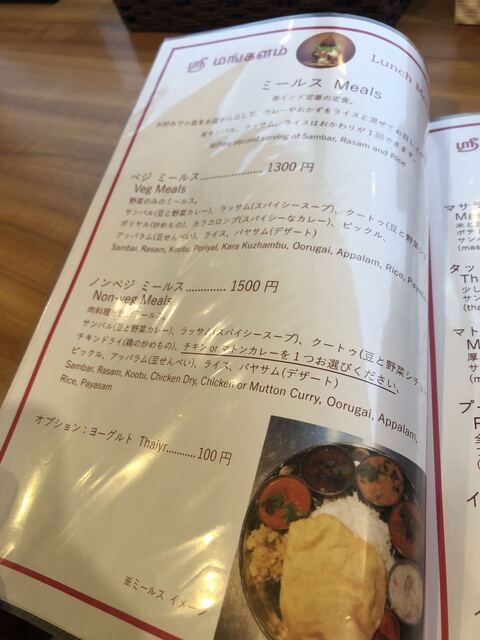 ஸ்ரீ மங்களம்
Lunch
ミールス Meals
南インド定番の定食。
お好みで小皿をお盆から出して、カレーやおかずをライスと混ぜてお召し
※サンバル、ラッサム、ライスはおかわりが1回できます。
※Free second serving of Sambar, Rasam and Rice
ベジ ミールス.................... 1300 円
Veg Meals
野菜のみのミールス。
サンバル(豆と野菜カレー)、ラッサム(スパイシースープ)、クートゥ(豆と野菜シチ
ポリヤル(炒めもの)、カラコロンブ(スパイシーなカレー)、ピックル、
アッパラム(豆せんべい)、ライス、パヤサム(デザート)
Sambar, Rasam, Kootu, Poriyal, Kara Kuzhambu, Oorugai, Appalam, Rice, Payasam
ノンベジ ミールス............. 1500 円
Non-veg Meals
サンバル(豆と野菜カレー)、ラッサム(スパイシースープ)、クートゥ(豆と野菜シチュー
チキンドライ(鶏の炒めもの)、チキン or マトンカレーを1つお選びください、
ピックル、アッパラム(豆せんべい)、ライス、パヤサム(デザート)
Sambar, Rasam, Kootu, Chicken Dry, Chicken or Mutton Curry, Oorugai, Appalam,
Rice, Payasam
オプション:ヨーグルト Thaiyr...........100 円
※ミールス イメージ
ஸ்ரீ
マサラ
Ma
米と
ポテ
サン
(mas
タッ
Th
少し
サン
(tha
マト
M
厚
サ
プ
イ